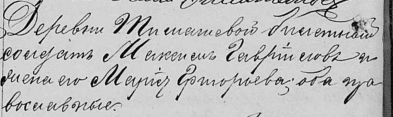 Деревни Тимашевой билетный
солдатъ Максимъ Гавриловъ и
жена его Марiя Григорьева; оба пра
вославные.